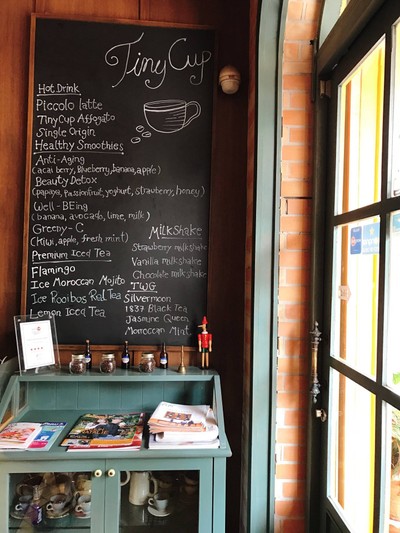 Tiny Cup
Hot Drink
Piccolo latte
TinyCup Affogato
Single Origin
Healthy Smoothies
Anti-Aging
(acai berry, blueberry, banana, apple)
Beauty Detox
(papaya, passionfruit, yoghurt, strawberry, honey)
Well-BEing
(banana, avocado, lime, milk)
Greeny-C
(kiwi, apple, fresh mint)
Premium Iced Tea
Flamingo
Ice Moroccan Mojito
Ice Rooibus Red Tea
Lemon Iced Tea
MilkShake
Strawberry milkshake
Vanilla milkshake
Chocolate milkshake
TWG
Silvermoon
1837 Black Tea
Jasmine Queen
Morroccan Mint